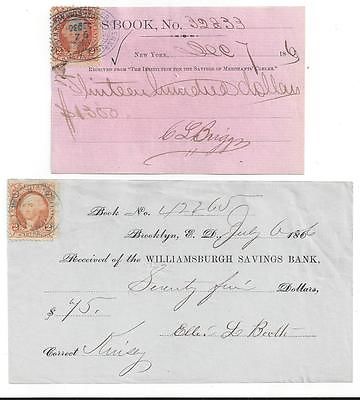 S BOOK, No. 32833
New York, Dec 7 186
Received from "The Institution for the Savings of Merchants' Clerks."
Thirteen hundred Dollars
$1300
C L Briggs
Book No. 42265
Brooklyn, E. D., July 6 186
Received of the WILLIAMSBURGH SAVINGS BANK,
Seventy five Dollars,
$ 75.
L Booth
Correct Kinsey